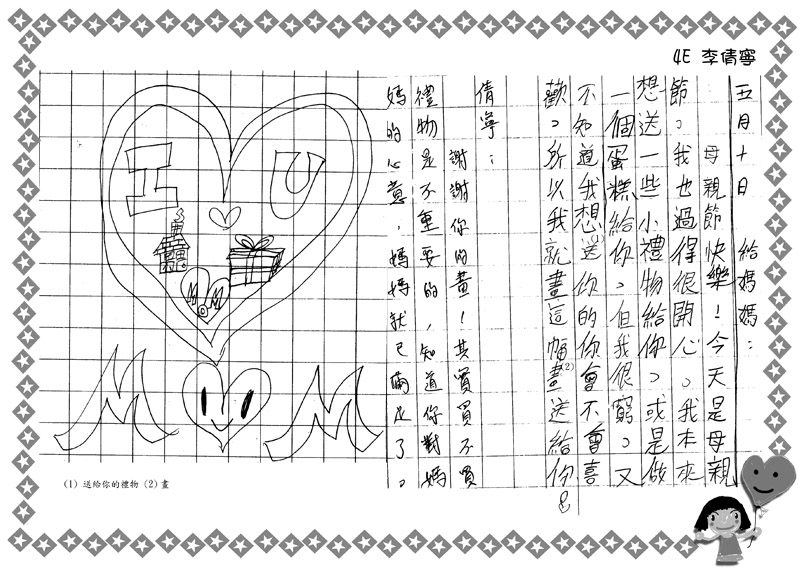 4E 李倩寧
五月十日 給媽媽：
母親節快樂！今天是母親
節。我也過得很開心。我本來
想送一些小禮物給你。或是做
一個蛋糕給你。但我很窮。又
不知道我想送(1)你的你會不會喜
歡。所以我就畫這幅畫(2)送給你
倩寧：
謝謝你的畫！其實買不買
禮物是不重要的，知道你對媽
媽的心意，媽媽就已滿足了。
I U
MOM
M M
(1) 送給你的禮物 (2) 畫